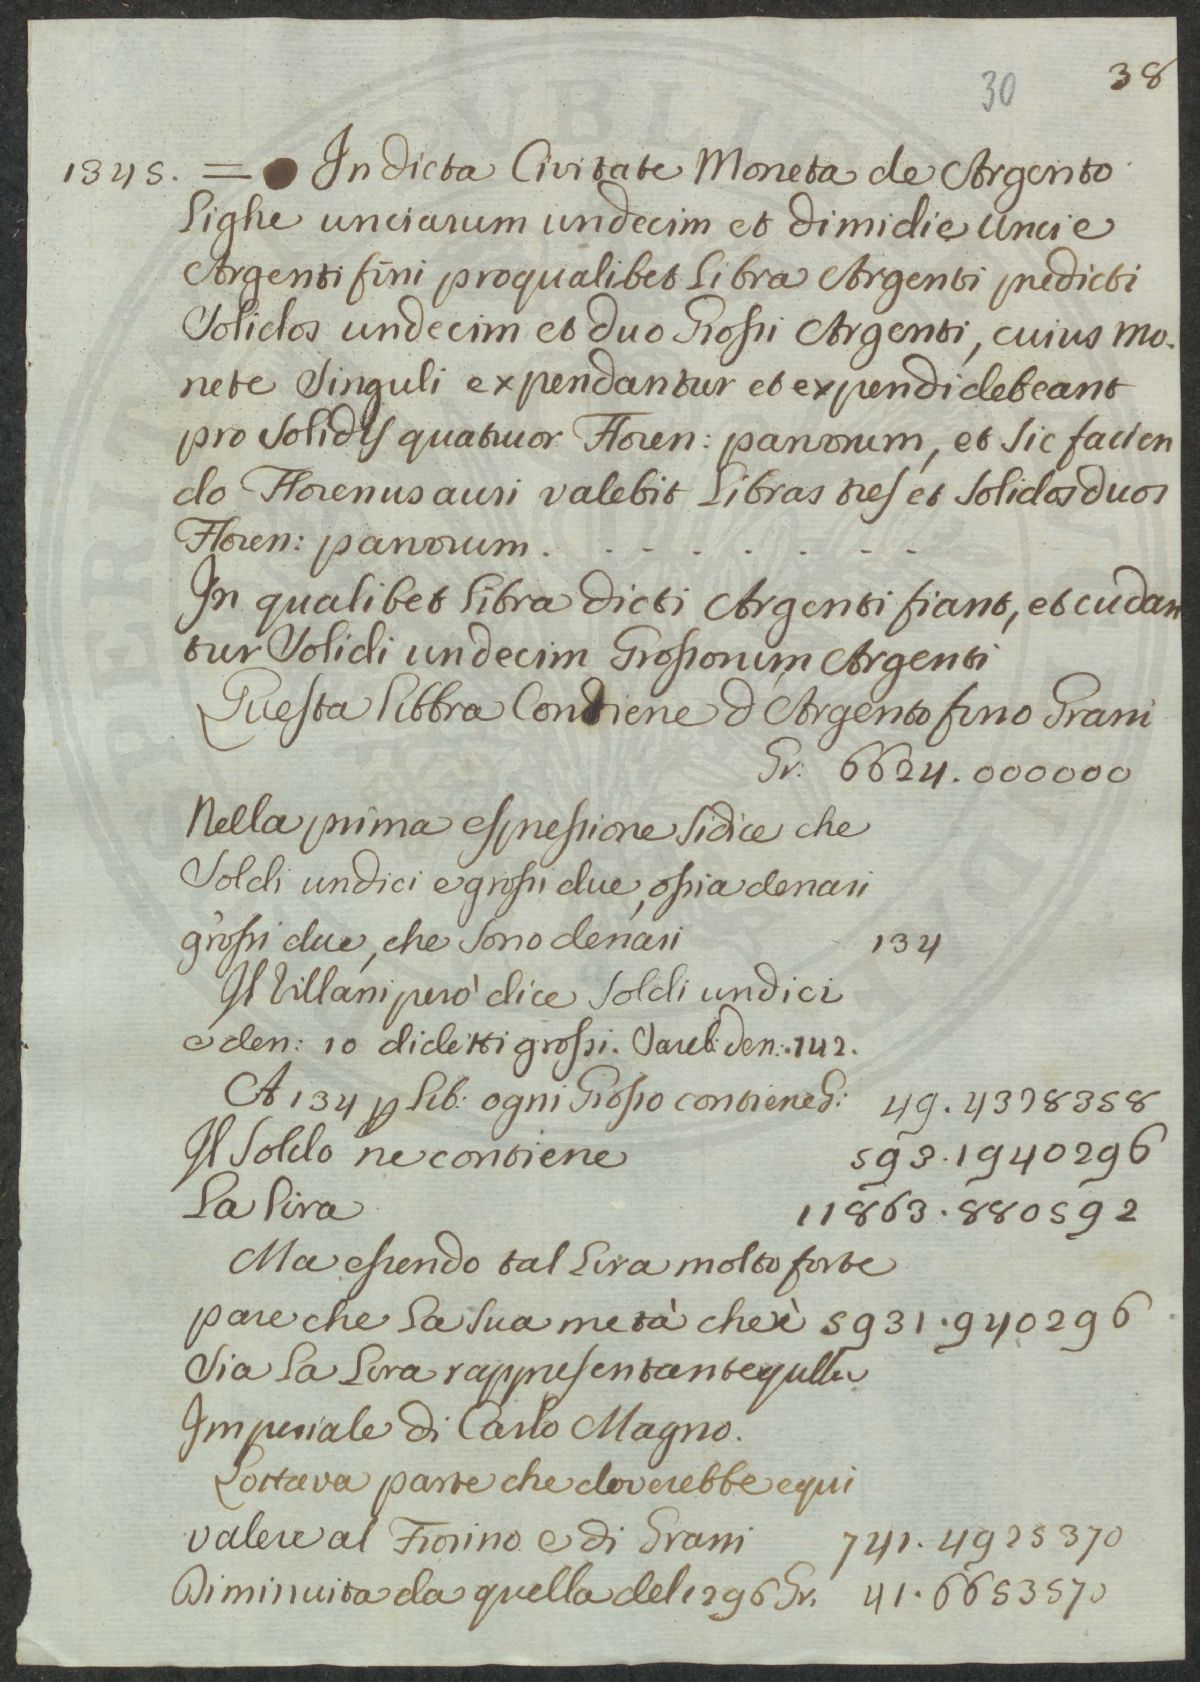 30 38
1345. = In dicta Civitate Moneta de Argento
Lighe unciarum undecim et dimidie Uncie
Argenti fini pro qualibet Libra Argenti predicti
Solidos undecim et duo Grossi Argenti, cuius mo-
nete Singuli expendantur et expendi debeant
pro Solidis quatuor Floren: parvorum, et Sic facien
do Florenus auri valebit Libras tres et Solidos duos
Floren: parvorum . . - . . . . - -
In qualibet Libra dicti Argenti fiant, et cudan
tur Solidi undecim Grossorum Argenti
Questa Libbra Contiene d'Argento fino Grani
Gr: 6624.000000
Nella prima espressione Si dice che
Soldi undici e grossi due, ossia denari
grossi due, che Sono denari 134
Il Villani però dice Soldi undici
e den: 10 di detti grossi. Sareb: Den: 142.
A 134 p Lib: ogni Grosso contiene G: 49.4328358
Il Soldo ne contiene 593.1940296
La Lira 11863.880592
Ma essendo tal Lira molto forte
pare che La Sua metà che è 5931.940296
Sia La Lira rappresentante qulla
Imperiale di Carlo Magno.
Lottava parte che doverebbe equi
valere al Fiorino e di Grani 741.4925370
Diminuita da quella del 1296 Gr. 41.6653570